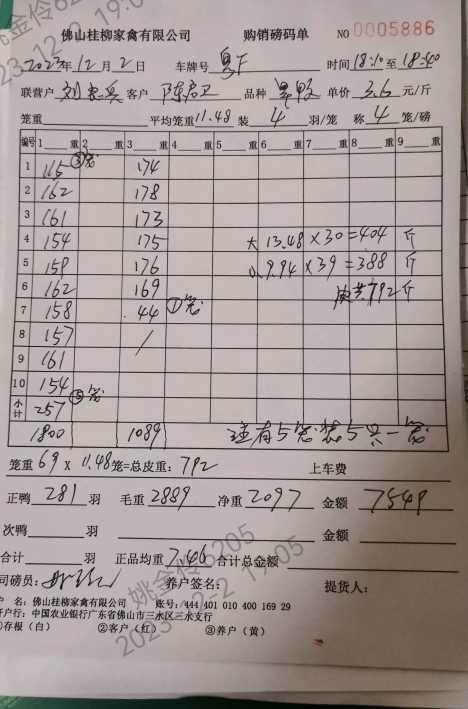 佛山桂柳家禽有限公司 购销磅码单 NO 0005886
2023年12月2日 车牌号 粤F 时间18:10至18:40
联营户 客户 品种 单价 3.6 元/斤
笼重 平均笼重11.48 装 4 羽/笼 称 4 笼/磅
编号 1 重 2 重 3 重 4 重 5 重 6 重 7 重 8 重 9 重
1 115 ③笼 174
2 162 178
3 161 173
4 154 175 大 13.48×30=404 斤
5 159 176 小 9.94×39=388 斤
6 162 169 792斤
7 158 44 ①笼
8 157 /
9 161
10 154 ⑤笼
小计 257
1800 1089 还有5笼装5只一笼
笼重 69 x 11.48笼=总皮重: 792 上车费
正鸭 281 羽 毛重 2889 净重 2097 金额 7549
次鸭 羽 金额
合计 羽 正品均重 7.46 合计总金额
司磅员: 养户签名: 提货人:
户 名: 佛山桂柳家禽有限公司 账号: 444 401 010 400 169 29
开户行: 中国农业银行广东省佛山市三水区三水支行
①存根(白) ②客户(红) ③养户(黄)
姚金伶6205
2023-12-2 19:05